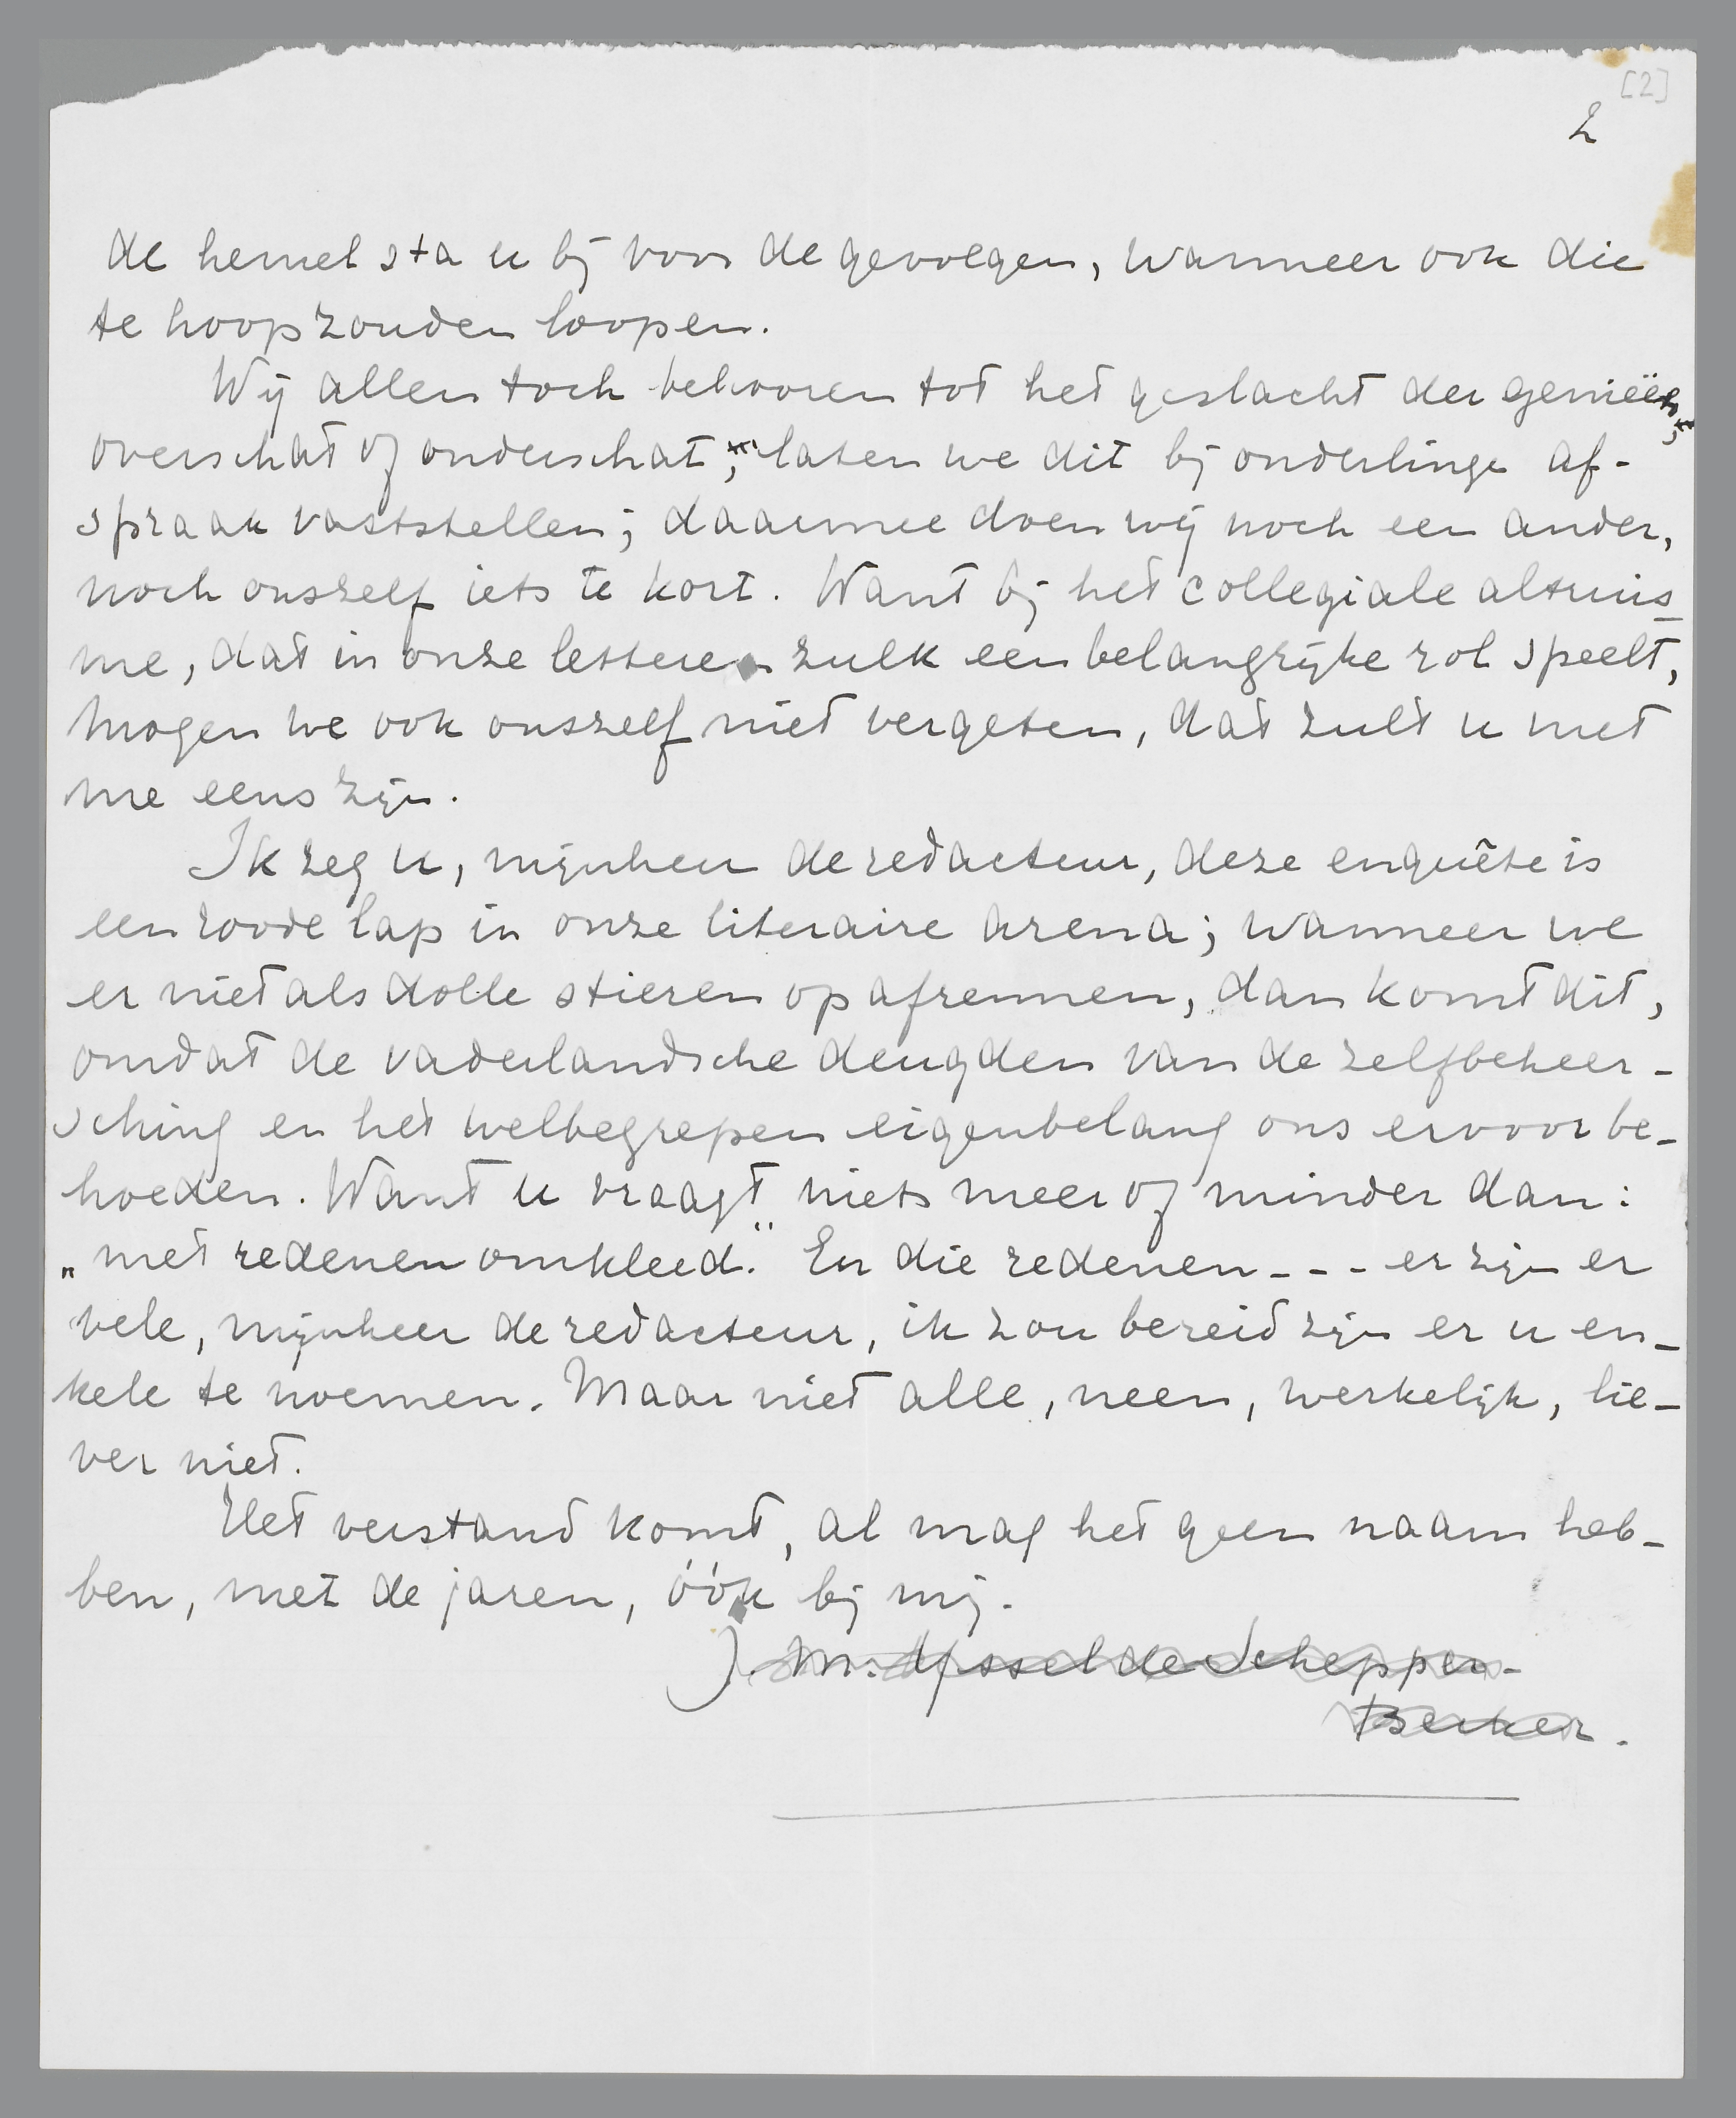 [2]
2
de hemel sta u bij voor de gevolgen, wanneer ook die
te hoop zouden loopen.
Wij allen toch behooren tot het geslacht der genieën,
overschat of onderschat, laten we dit bij onderlinge af-
spraak vaststellen; daarmee doen wij noch een ander,
noch onszelf iets te kort. Want bij het collegiale altruis
me, dat in onze letteren zulk een belangrijke rol speelt,
mogen we ook onszelf niet vergeten, dat zult u met
me eens zijn.
Ik zeg u, mijnheer de redacteur, deze enquête is
een roode lap in onze literaire arena; wanneer we
er niet als dolle stieren op afrennen, dan komt dit,
omdat de vaderlandsche deugden van de zelfbeheer-
sching en het welbegrepen eigenbelang ons ervoor be-
hoeden. Want u vraagt niets meer of minder dan:
„met redenen omkleed." En die redenen - - - er zijn er
vele, mijnheer de redacteur, ik zou bereid zijn er u en-
kele te noemen. Maar niet alle, neen, werkelijk, lie-
ver niet.
Het verstand komt, al mag het geen naam heb-
ben, met de jaren, óók bij mij.
J. M. IJssel de Schepper-
Becker.